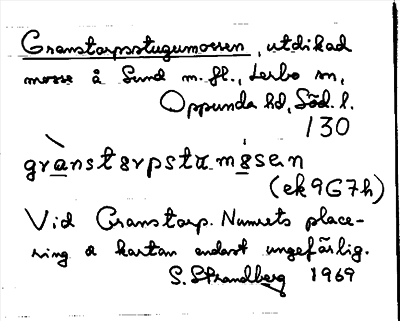 Granstorpsstugumossen, utdikad
mosse å Sund m. fl., Lerbo sn,
Oppunda hd, Söd. l.
130
granstɵrpstɯmɵsen
(ek 9G7h)
Vid Granstorp. Namnets place-
ring å kartan endast ungefärlig.
S. Strandberg 1969